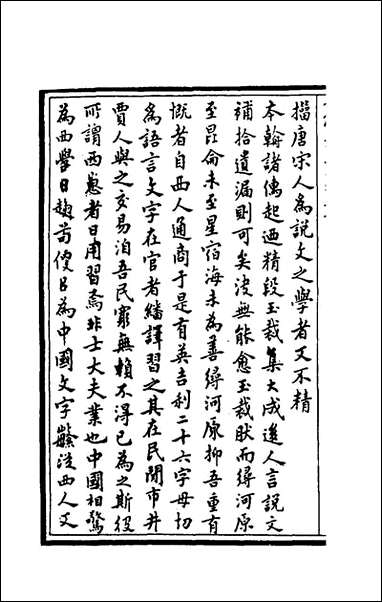 揩唐宋人為說文之學者又不精
本翰諸傳起迺精段玉裁集大成後人言說文
補拾遺漏則可矣決無能愈玉裁肰而尋河原
至昆侖未至星宿海未為善尋河原抑吾重有
慨者自西人通商于是有英吉利二十六字母切
為語言文字在官者繙譯習之其在民閒市井
賈人與之交易洎吾民窮無賴不得已為之斯役
所謂西崽者日用習焉非士大夫業也中國相驚
為西學日趨苟傻日為中國文字難從西人文